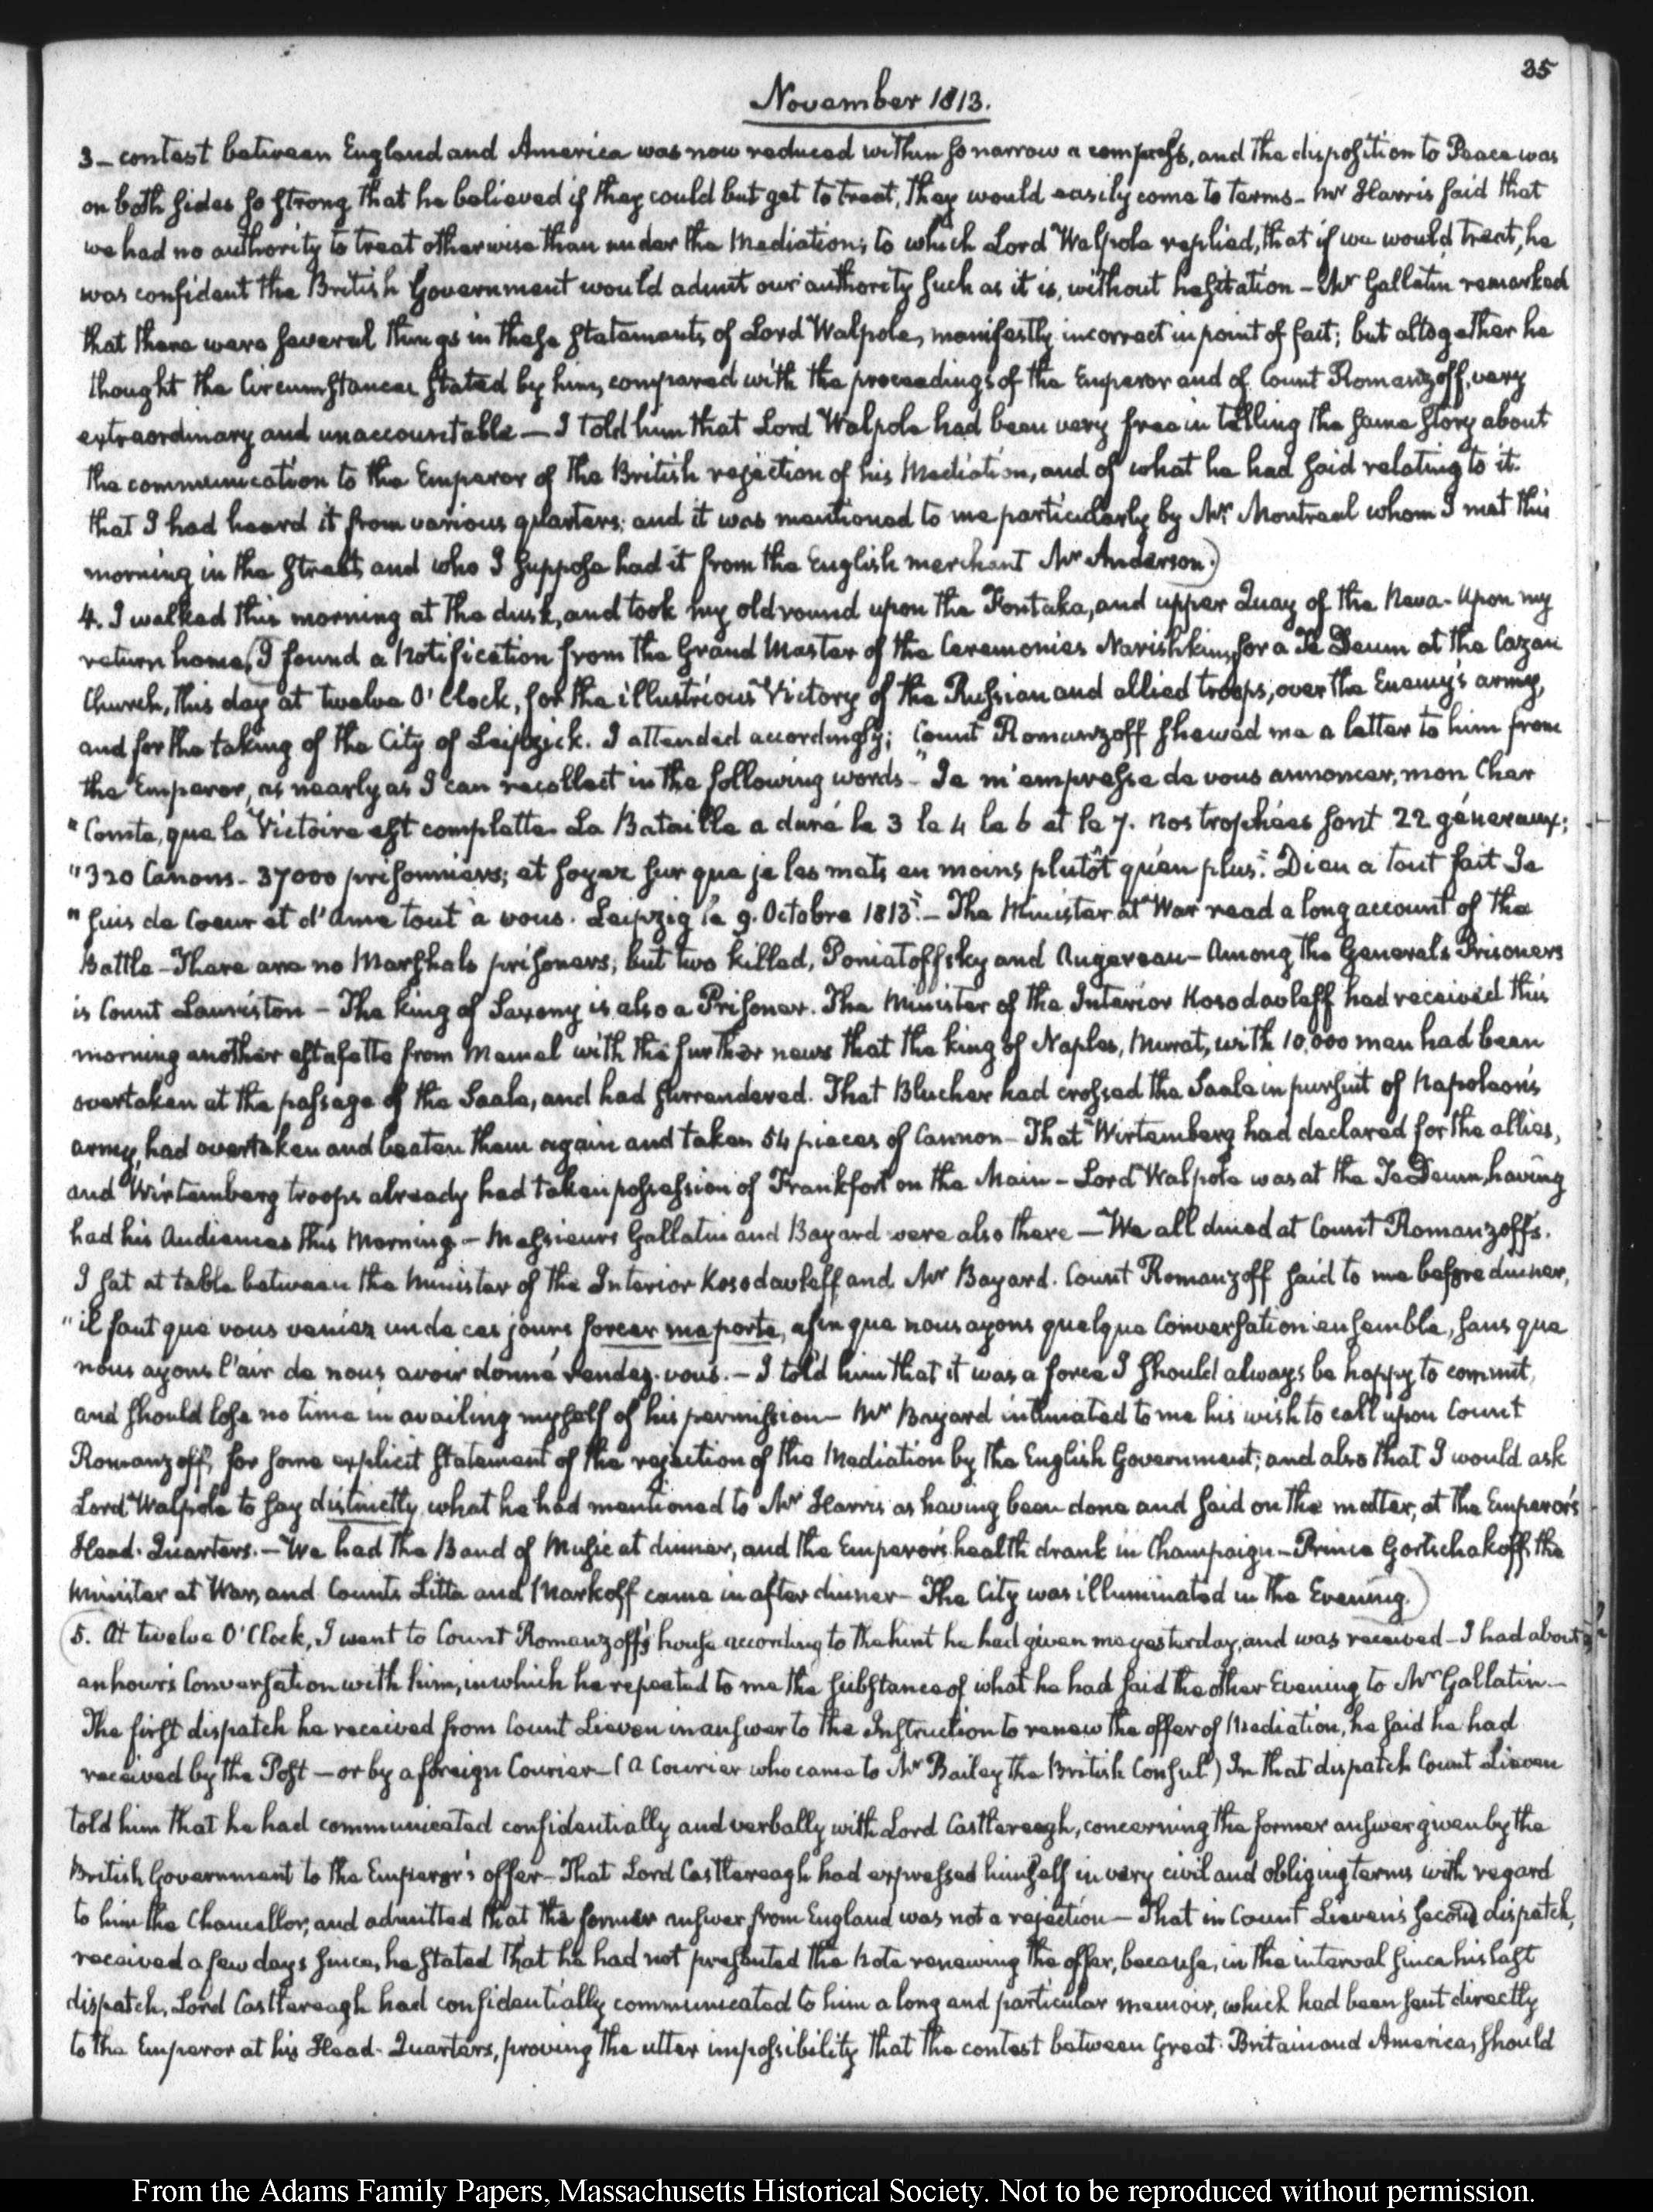 35
November 1813.
3 – contest between England and America was now reduced within so narrow a compass, and the disposition to Peace was
on both sides so strong that he believed if they could but get to treat, they would easily come to terms – Mr Harris said that
we had no authority to treat otherwise than under the Mediation; to which Lord Walpole replied, that if we would treat, he
was confident the British Government would admit our authority such as it is, without hesitation – Mr Gallatin remarked
that there were several things in these statements of Lord Walpole, manifestly incorrect in point of fact; but altogether he
thought the Circumstances stated by him, compared with the proceedings of the Emperor and of Count Romanzoff, very
extraordinary and unaccountable – I told him that Lord Walpole had been very free in telling the same story about
the communication to the Emperor of the British rejection of his Mediation, and of what he had said relating to it.
that I had heard it from various quarters; and it was mentioned to me particularly by Mr Montreal whom I met this
morning in the street and who I suppose had it from the English merchant Mr Anderson.)
4. I walked this morning at the dusk, and took my old round upon the Fontaka, and upper Quay of the Neva. Upon my
return home, (I found a Notification from the Grand Master of the Ceremonies Narishkin, for a Te Deum at the Cazan
Church, this day at twelve O'Clock, for the illustrious Victory of the Russian and allied troops, over the Enemy's army,
and for the taking of the City of Leipzick. I attended accordingly; Count Romanzoff shewed me a letter to him from
the Emperor, as nearly as I can recollect in the following words – "Je m'empresse de vous annoncer, mon Cher
"Comte, que la Victoire est complette. La Bataille a duré le 3 le 4 le 6 et le 7. nos trophées sont 22 géneraux;
"320 Canons – 37000 prisonniers; et soyez sur que je les mets en moins plutôt qu'en plus." Dieu a tout fait Je
"suis de Coeur et d'Ame tout à vous. Leipzig le 9. Octobre 1813." – The Minister at War read a long account of the
Battle – There are no Marshals prisoners, but two killed, Poniatoffsky and Augereau – Among the Generals Prisoners
is Count Lauriston – The king of Saxony is also a Prisoner. The Minister of the Interior Kosodavleff had received this
morning another estafette from Memel with the further news that the king of Naples, Murat, with 10,000 men had been
overtaken at the passage of the Saale, and had surrendered. That Blucher had crossed the Saale in pursuit of Napoleon's
army, had overtaken and beaten them again and taken 54 pieces of Cannon – That Wirtemberg had declared for the allies,
and Wirtemberg troops already had taken possession of Frankfort on the Main – Lord Walpole was at the Te Deum, having
had his Audiences this Morning. – Messieurs Gallatin and Bayard were also there – We all dined at Count Romanzoff's.
I sat at table between the Minister of the Interior Kosodavleff and Mr Bayard. Count Romanzoff said to me before dinner,
"il faut que vous veniez un de ces jours forcer ma porte, afin que nous ayons quelque Conversation ensemble, sans que
nous ayons l'air de nous avoir donné rendez-vous. – I told him that it was a force I should always be happy to commit,
and should lose no time in availing myself of his permission – Mr Bayard intimated to me his wish to call upon Count
Romanzoff, for some explicit statement of the rejection of the Mediation by the English Government; and also that I would ask
Lord Walpole to say distinctly what he had mentioned to Mr Harris as having been done and said on the matter, at the Emperor's
Head-Quarters. – We had the Band of Music at dinner, and the Emperor's health drank in Champaign – Prince Gortschakoff, the
Minister at War, and Counts Litta and Markoff came in after dinner – The City was illuminated in the Evening.)
(5. At twelve O'Clock, I went to Count Romanzoff's house according to the hint he had given me yesterday, and was received – I had about
an hour's Conversation with him, in which he repeated to me the substance of what he had said the other Evening to Mr Gallatin –
The first dispatch he received from Count Lieven in answer to the Instruction to renew the offer of Mediation, he said he had
received by the Post – or by a foreign Courier – (a Courier who came to Mr Bailey the British Consul) In that dispatch Count Lieven
told him that he had communicated confidentially and verbally with Lord Castlereagh, concerning the former answer given by the
British Government to the Emperor's offer – That Lord Castlereagh had expressed himself in very civil and obliging terms with regard
to him the Chancellor, and admitted that the former answer from England was not a rejection – That in Count Lieven's second dispatch,
received a few days since, he stated that he had not presented the Note renewing the offer, because, in the interval since his last
dispatch, Lord Castlereagh had confidentially communicated to him a long and particular memoir, which had been sent directly
to the Emperor at his Head-Quarters, proving the utter impossibility that the contest between Great-Britain and America, should
From the Adams Family Papers, Massachusetts Historical Society. Not to be reproduced without permission.